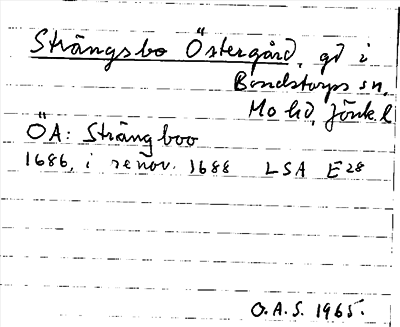 Strängsbo Östergård, gd i
Bondstorps sn,
Mo hd, Jönk.l
ÖA: Sträng boo
1686, i renov. 1688 LSA E28
O.A.S. 1965.